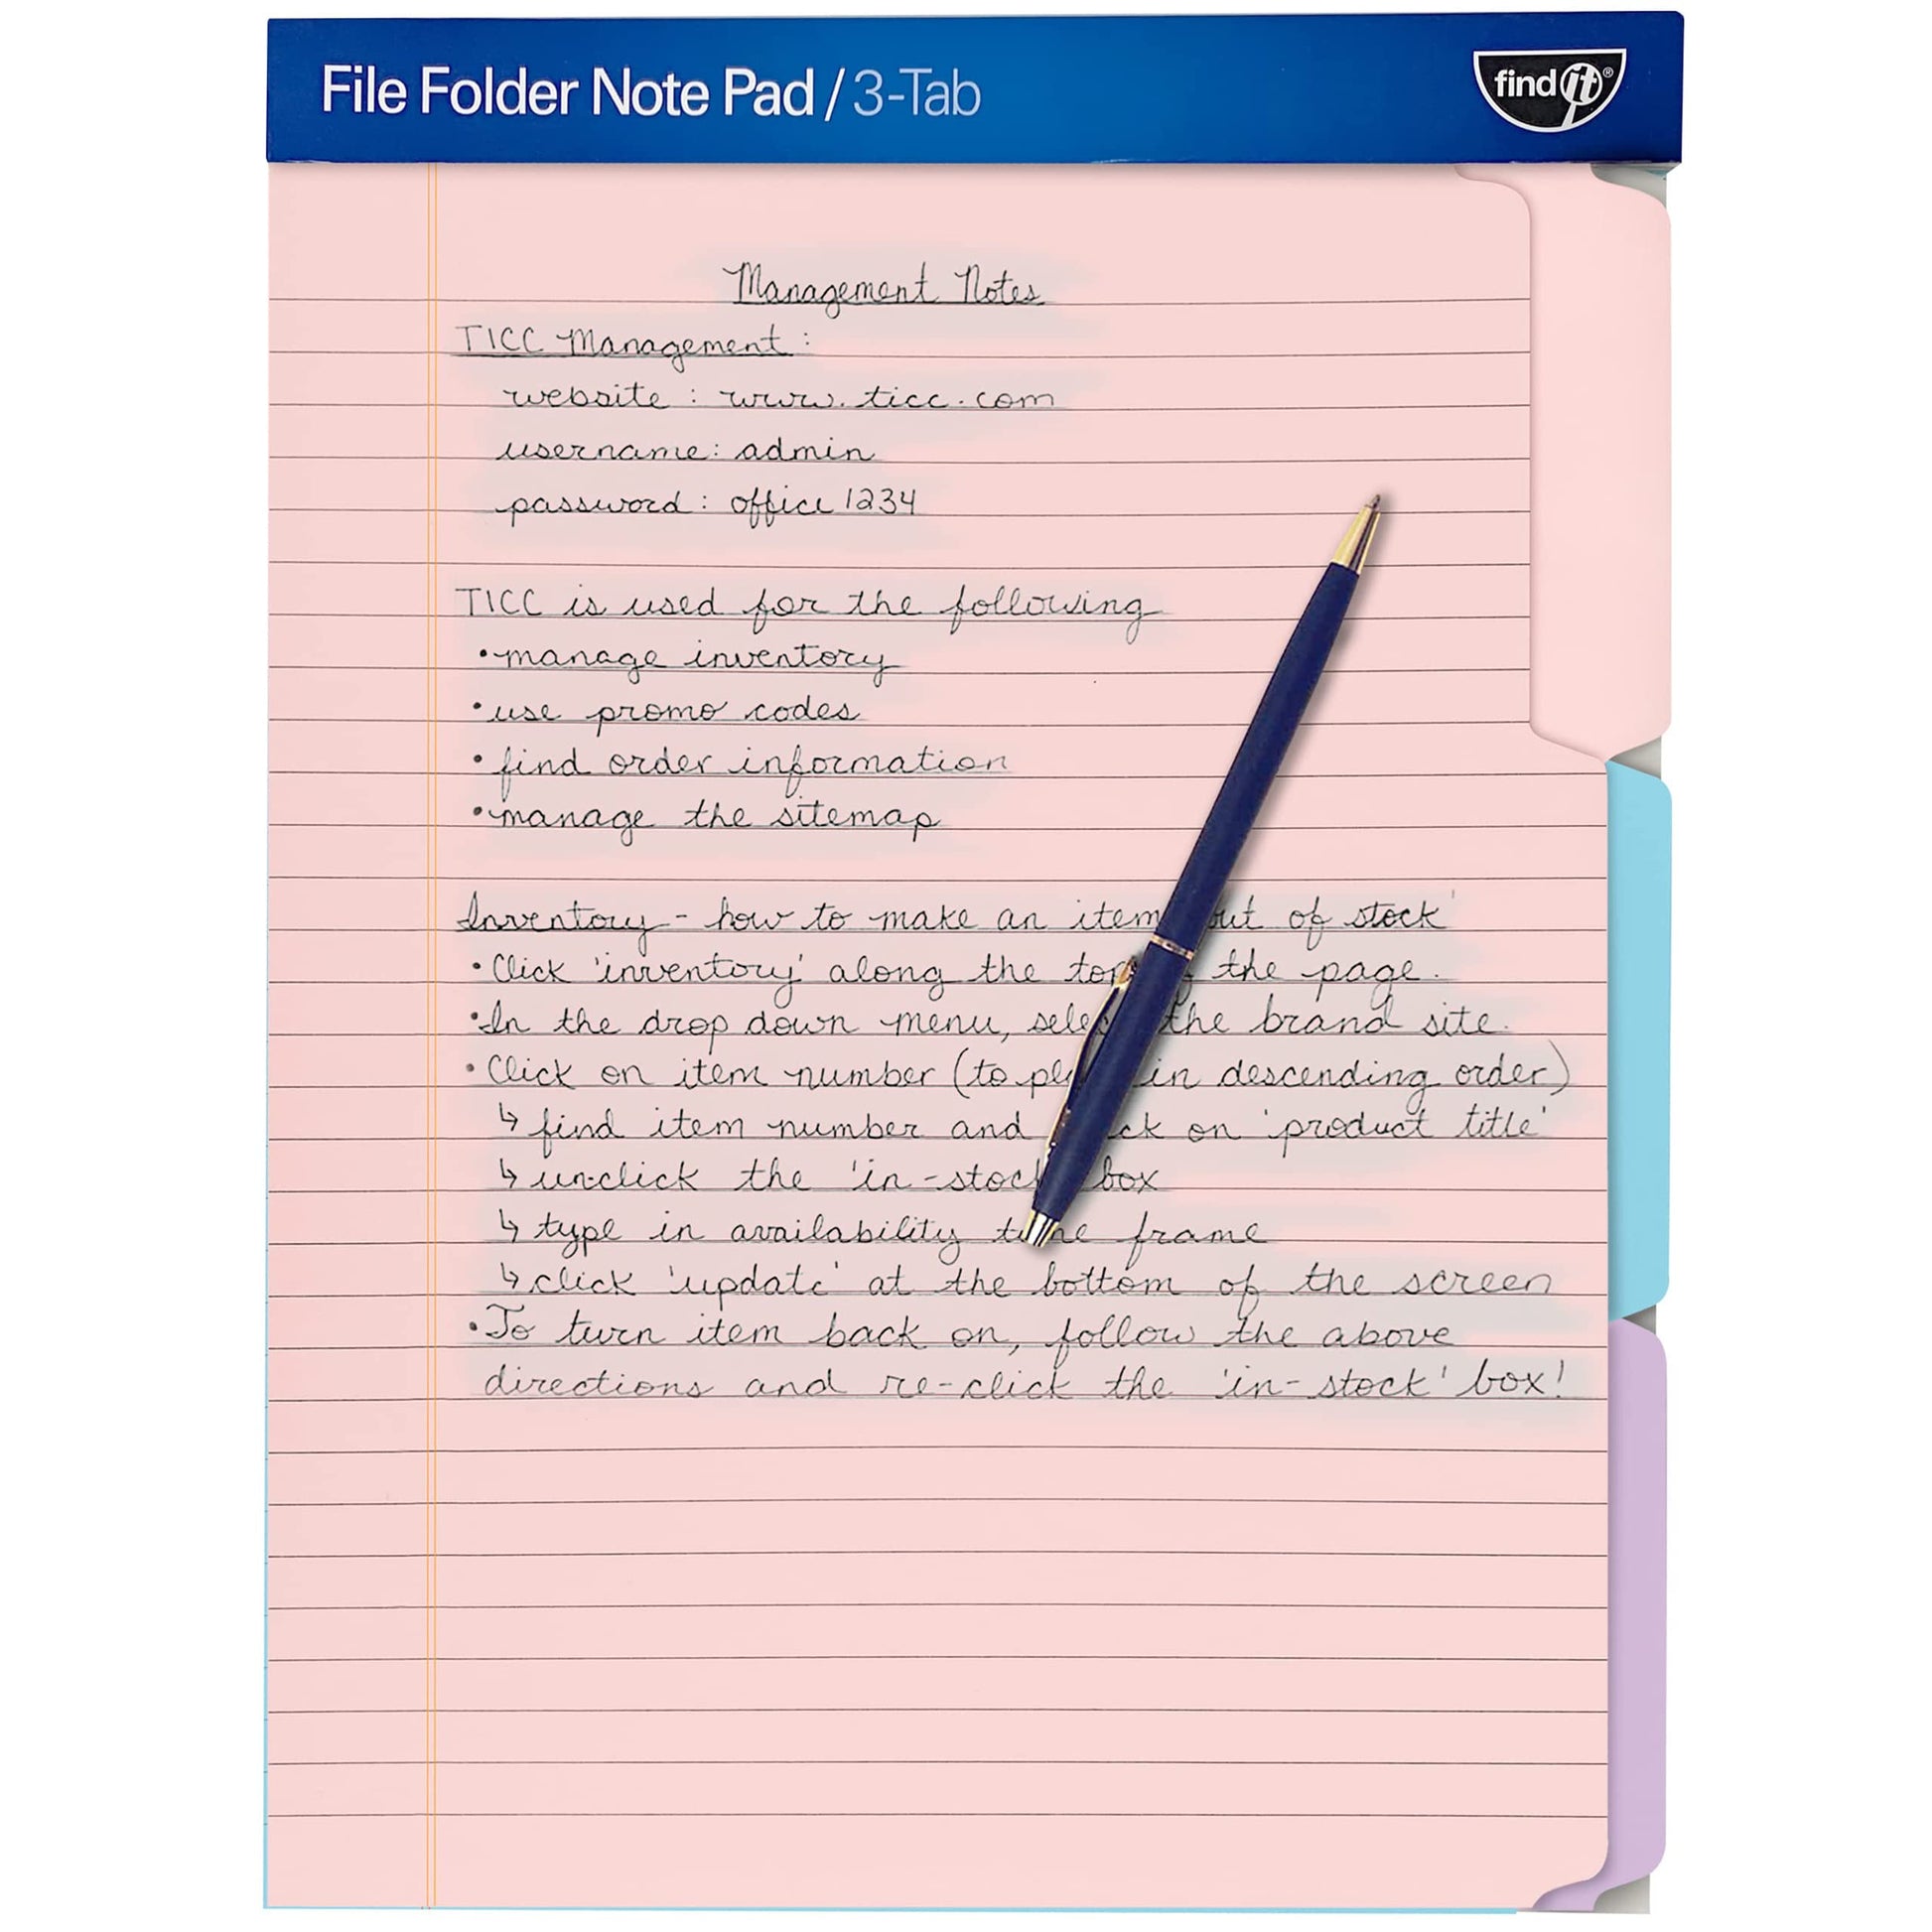 File Folder Note Pad / 3-Tab
find it®
Management Notes
TICC Management:
website: www.ticc.com
username: admin
password: office1234
TICC is used for the following
•manage inventory
•use promo codes
•find order information
•manage the sitemap
Inventory - how to make an item out of stock'
•Click 'inventory' along the top the page.
•In the drop down menu, select the brand site.
•Click on item number (to in descending order)
↳ find item number and on 'product title'
↳ unclick the 'in-stock box
↳ type in availability time frame
↳ click 'update' at the bottom of the screen
•To turn item back on, follow the above
directions and re-click the 'in-stock' box!